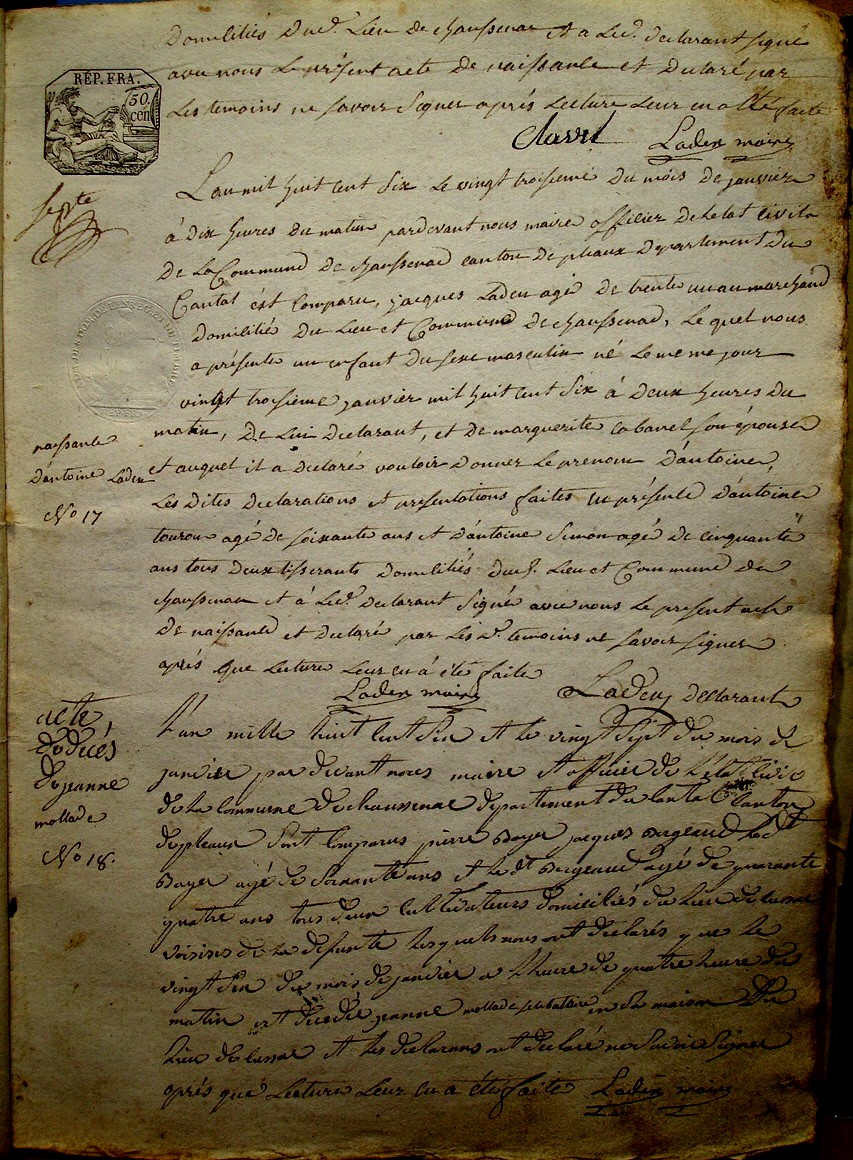 domiciliés dud. Lieu de chaussenac et a Led. declarant signé
avec nous Le présent acte de naissance et declaré par
Les temoins ne savoir signer après Lecture Leur en a été faite
Claviere Laden maire
RÉP. FRA.
50 cen
septe
L'an mil huit cent six Le vingt troisieme du mois de janvier
à dix heures du matin pardevant nous maire officier de Letat civil
de La Commune de chaussenac canton de pleaux departement du
Cantal est comparu, jacques Laden agé de trente un an marchand
domicilié du Lieu et Commune de chaussenac, Le quel nous
a présenté un enfant du sexe masculin né Le meme jour
vingt troisieme janvier mil huit cent six à deux heures du
matin, de Lui declarant, et de marguerite cabanel son épouse
et auquel il a declaré vouloir donner Le prenom d'antoine,
naissance
d'antoine Laden
No 17
Les dites declarations et presentations faites en présence d'antoine
touron agé de soixante ans et d'antoine simon agé de cinquante
ans tous deux tisserants domiciliés dud. Lieu et Commune de
chaussenac et à Led. declarant signé avec nous Le present acte
de naissance et declaré par Les d. temoins ne savoir signer
après que Lecture Leur en à été faite
Laden maire Laden declarant
acte
de décès
de jeanne
mollade
No 18.
L'an mille huit cent six et le vingt sept du mois de
janvier par devant nous maire et officier de l'état civil
de la commune de chaussenac departement du cantal canton
de pleaux sont comparus pierre Boyer jacques Bergeaud led.
Boyer agé de soixante ans et le dt Bergeaud agé de quarante
quatre ans tous deux cultivateurs domiciliés du lieu de
voisins de la defunte lesquels nous ont declarés que le
vingt six du mois de janvier a l'heure de quatre heure du
matin est decedée jeanne mollade celibataire en sa maison du
lieu de et les declarans ont declaré ne savoir signer
après que Lecture Leur en a été faite Laden maire